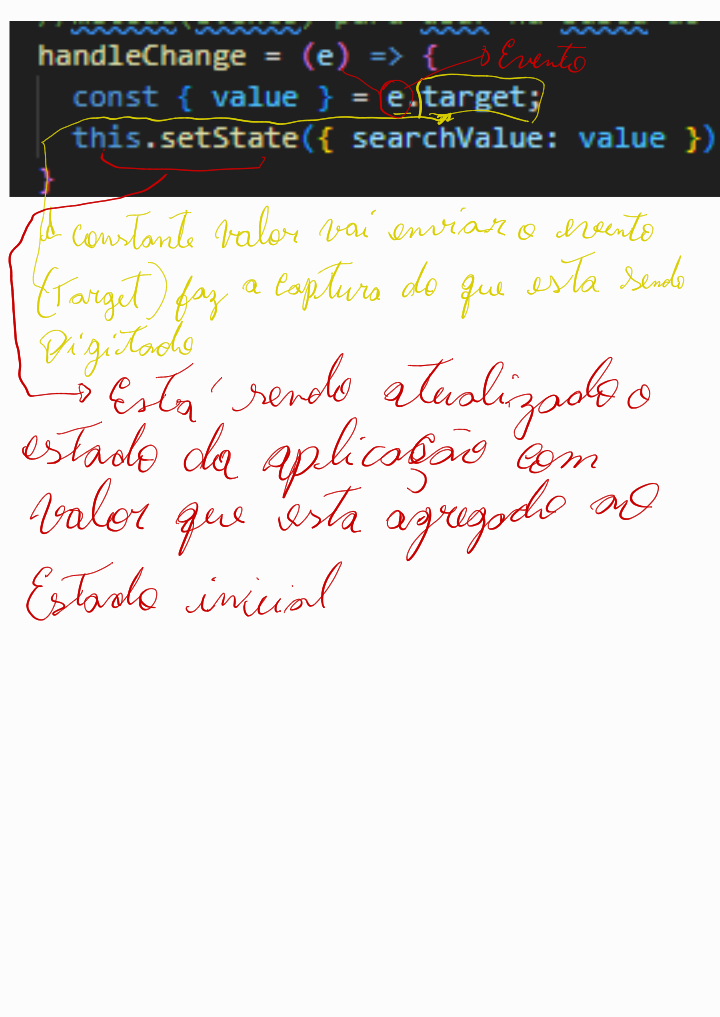 handleChange = (e) => {
Evento
const { value } = e.target;
this.setState({ searchValue: value })
}
constante valor vai enviar o evento
(Target) faz a captura do que esta sendo
Digitado
Está sendo atualizado o
estado da aplicação com
valor que esta agregado no
Estado inicial